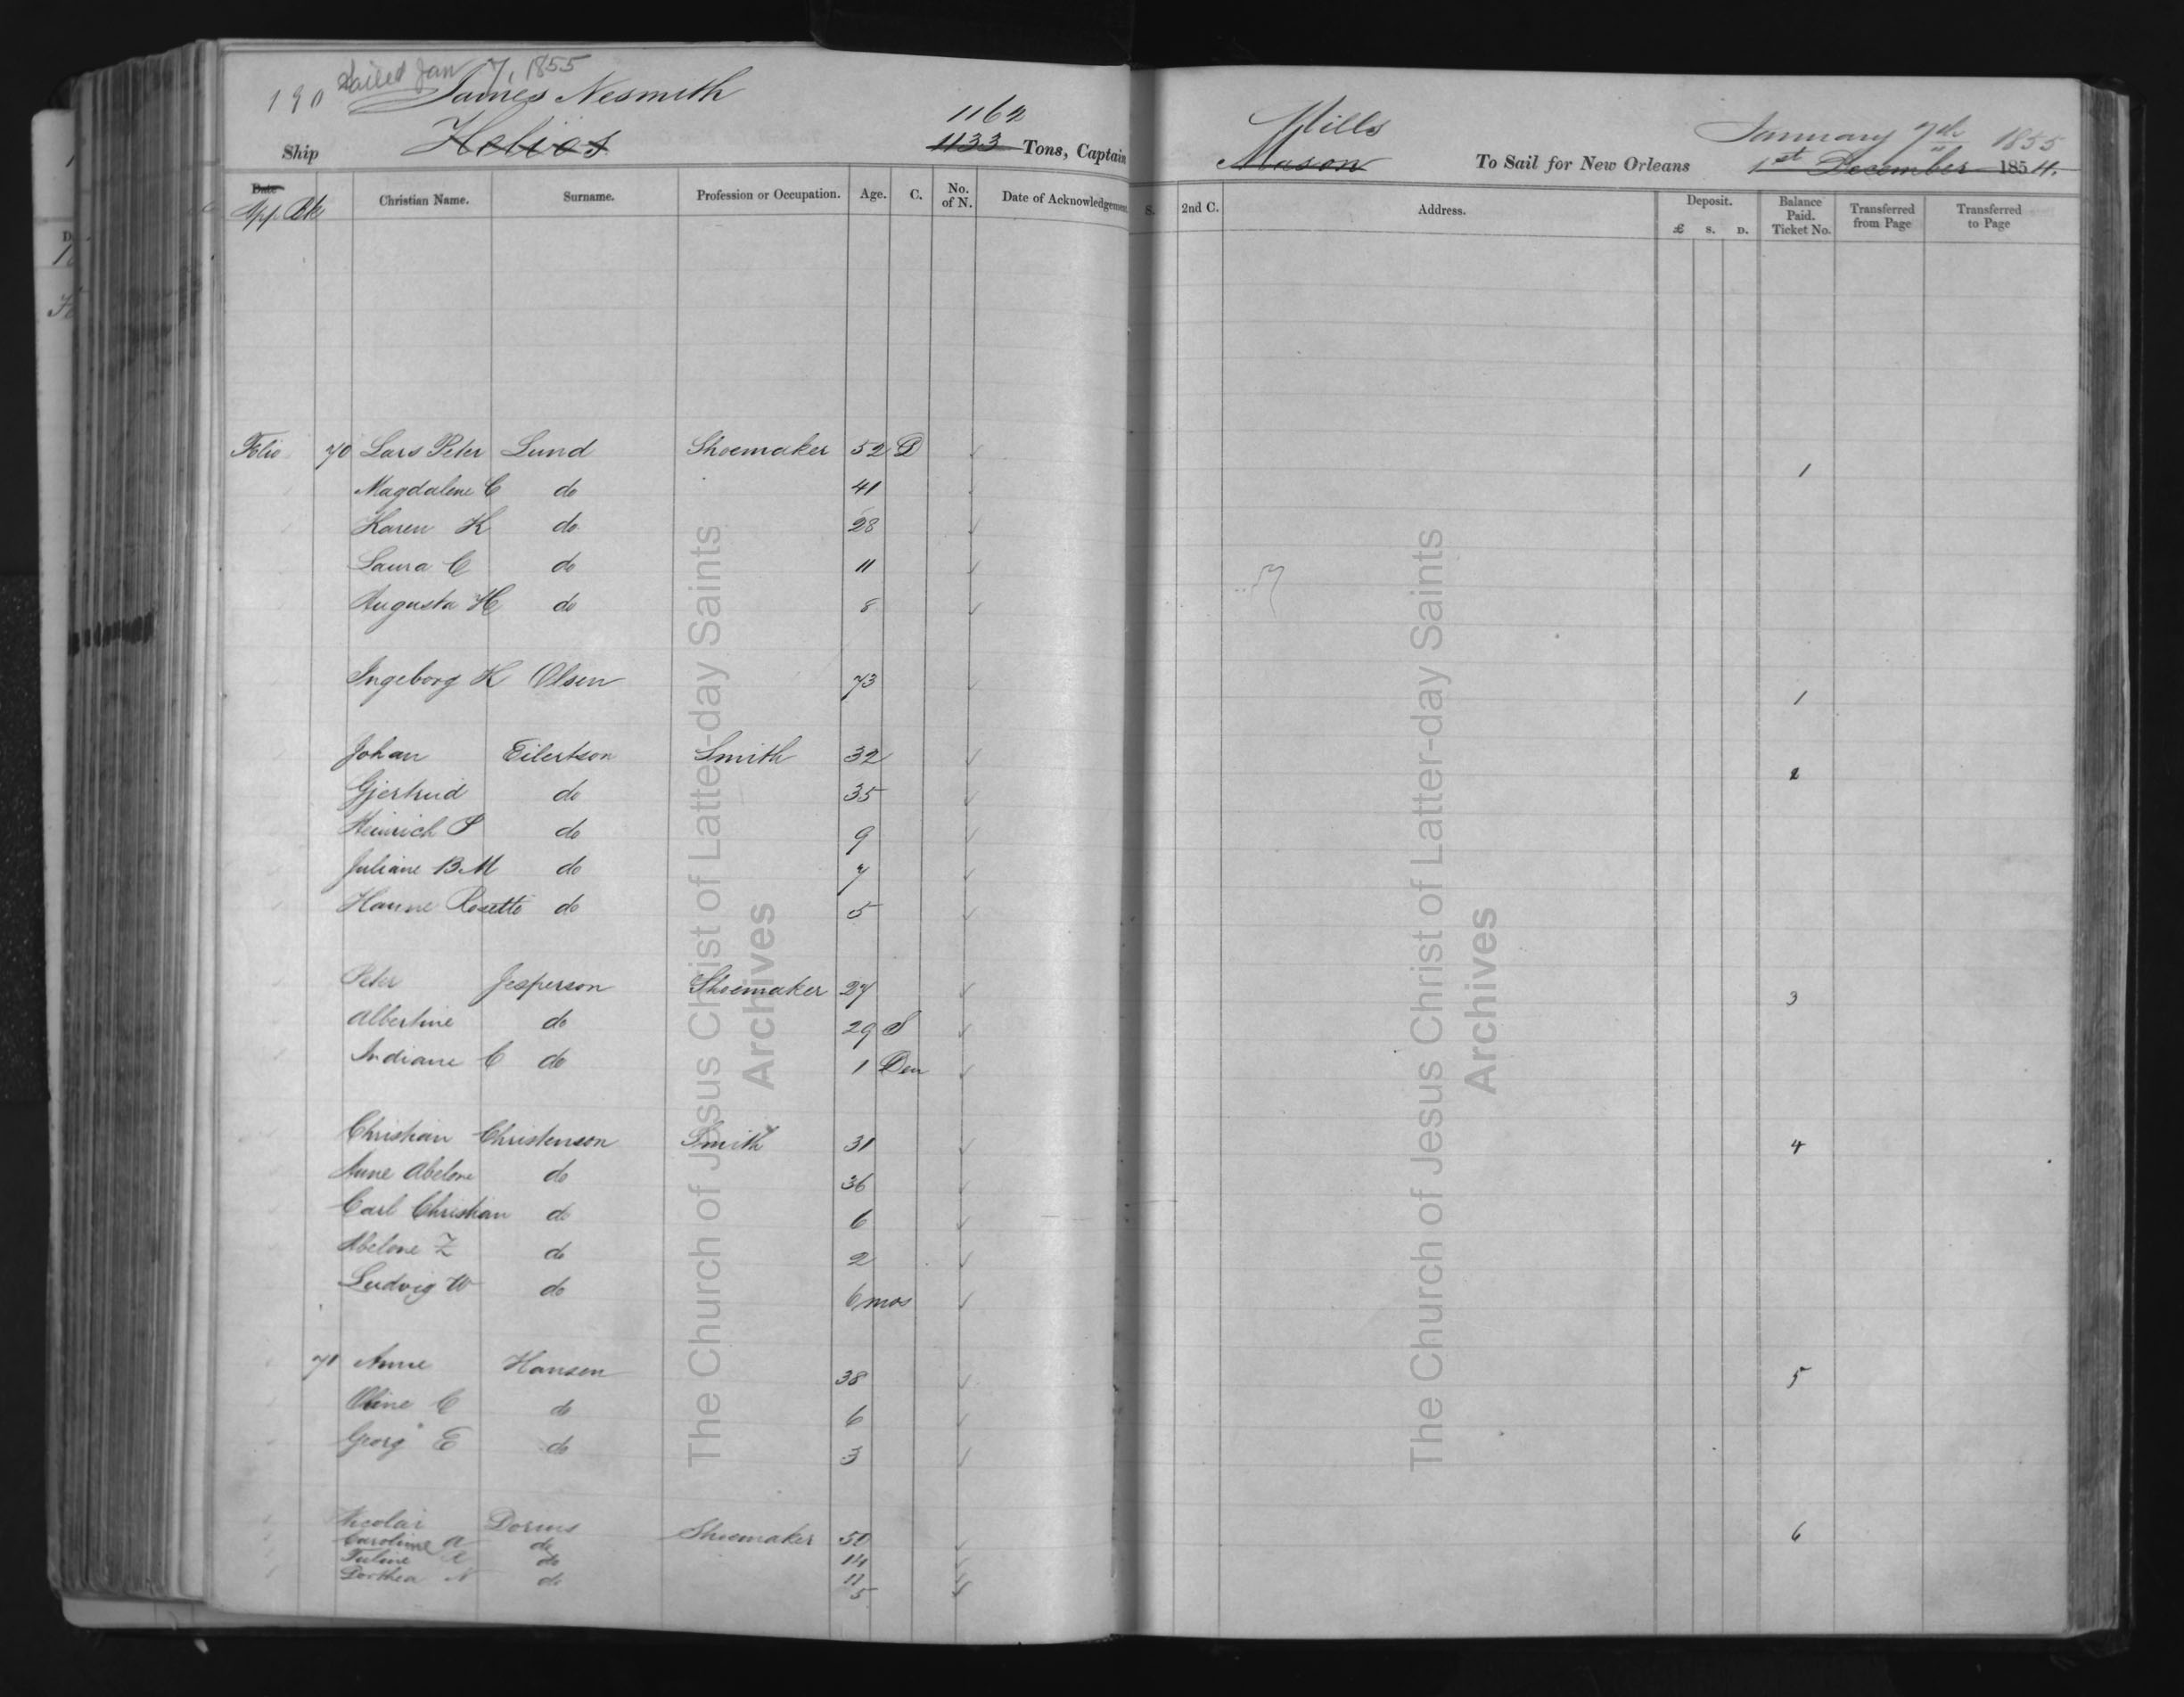 190 Sailed Jan 7, 1855
James Nesmith 1162 Mills January 7th 1855
Ship Helios 1133 Tons, Captain Mason To Sail for New Orleans 1st December 1854.
Date Christian Name. Surname. Profession or Occupation. Age. C. No. of N. Date of Acknowledgement. S. 2nd C. Address. Deposit. £ S. D. Balance Paid. Ticket No. Transferred from Page Transferred to Page
Folio 70 Lars Peter Lund Shoemaker 52 D 1
Magdalene C do 41
Karen K do 28
Laura C do 11
Augusta H do 8
Ingeborg K Olsen 73 1
Johan Eilertson Smith 32 2
Gjertrud do 35
Heinrich P do 9
Juliane B.M do 7
Hanne Rosette do 5
Peter Jesperson Shoemaker 27 3
Albertine do 29 S
Indiane C do 1 Den
Christian Christenson Smith 31 4
Anne Abelone do 36
Carl Christian do 6
Abelone Z do 2
Ludvig W do 6 mos
71 Anne Hansen 38 5
Oline C do 6
Georg E do 3
Nicolai Dorius Shoemaker 50 6
Caroline A do 14
do 11
Dorthea N do 5
The Church of Jesus Christ of Latter-day Saints
Archives
The Church of Jesus Christ of Latter-day Saints
Archives